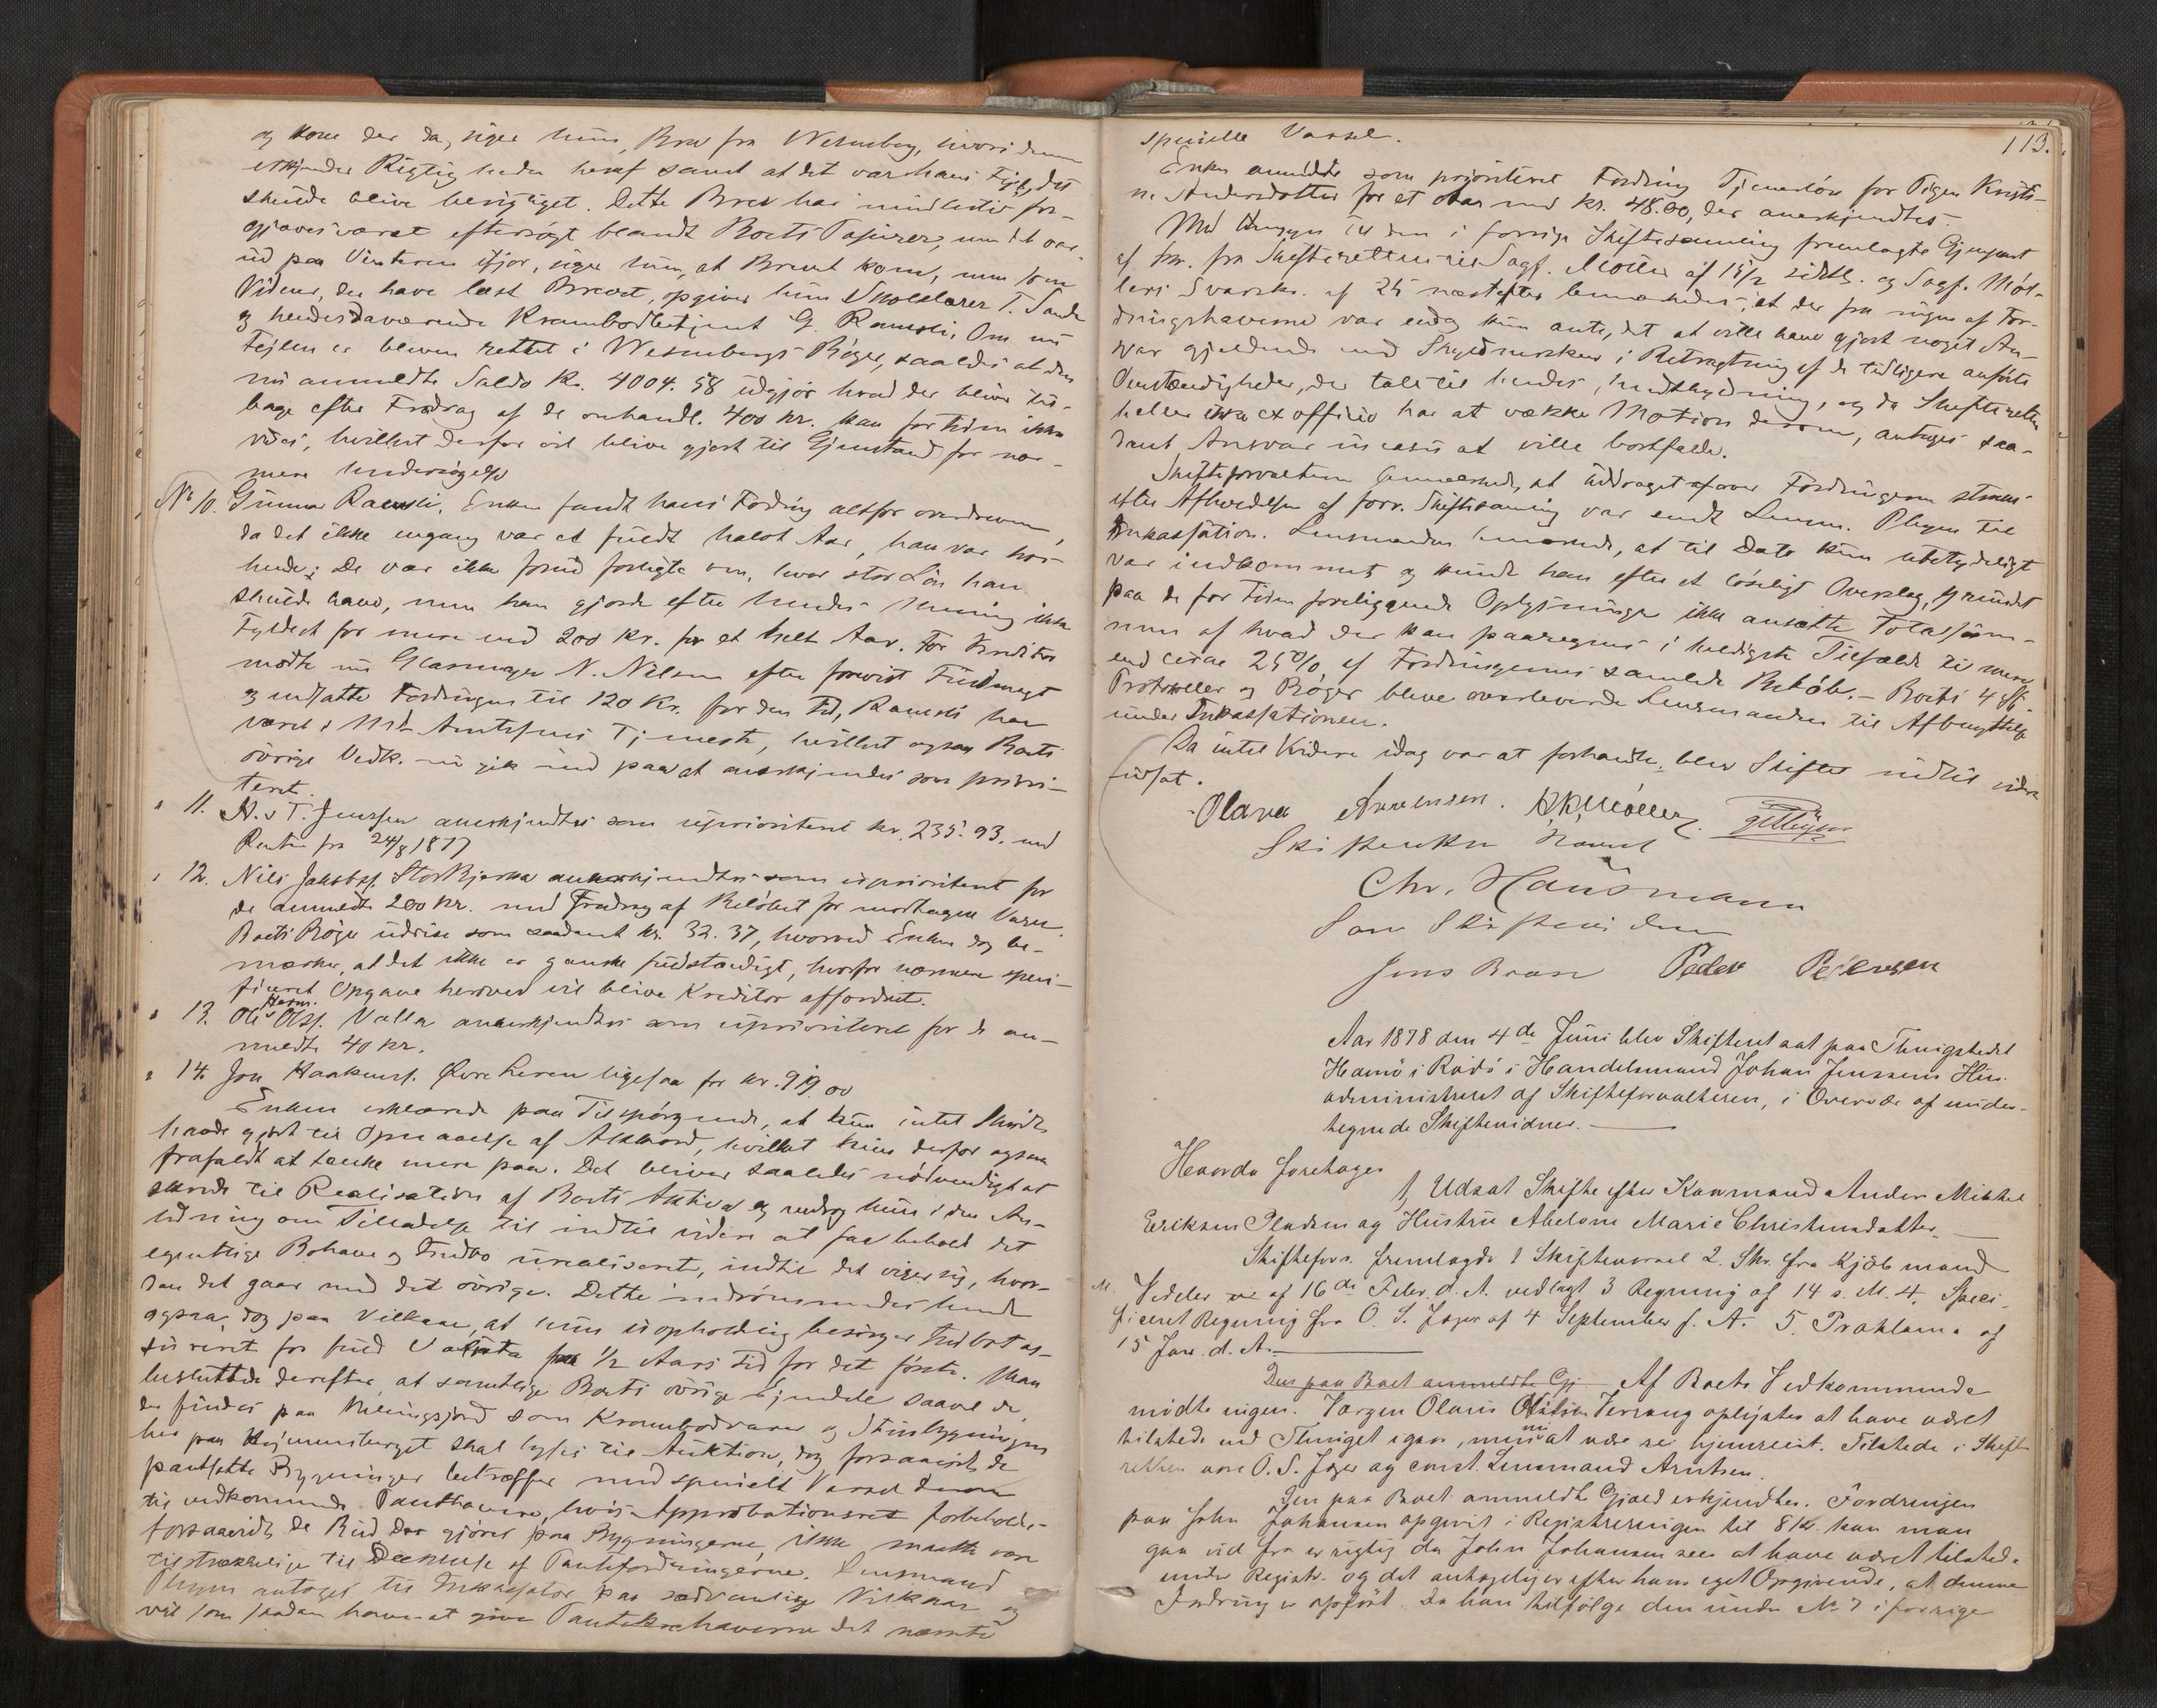 og kom der da, siger hun, Brev fra Wesenberg, hvori denne
erkjender Rigtigheden heraf samt at det var hans Fejl, det
skulde blive berigtiget. Dette Brev har imidlertid for-
gjæves været eftersøgt blandt Boets Papirer, men det var
ud paa Vinteren ifjor, siger hun, at Brevet kom, men som
Vidner, der have læst Brevet, opgiver hun Skolelærer T. Sande
og hendes daværende Krambodbetjent G. Ramsli. Om nu
Fejlen er bleven rettet i Wesenbergs Bøger, saaledes at den
nu anmeldte Saldo Kr. 4004.58 udgjør hvad der bliver til-
bage efter Fradrag af de omhandl. 400 Kr. kan for Tiden ikke
vides, hvilket derfor vil blive gjort til Gjenstand for nær-
mere Undersøgelse
No 10. Gunnar Ramsli. Enken fandt hans Fordring altfor overdreven,
da det ikke engang var et fuldt halvt Aar, han var hos
hende; De var ikke forud forligte om, hvor stor Løn han
skulde have, men han gjorde efter hendes Mening ikke
Fyldest for mere end 200 Kr. for et helt Aar. For Kreditor
mødte nu Glarmager N. Nilsen efter forevist Fuldmagt
og nedsatte Fordringen til 120 Kr. for den Tid, Ramsli har
været i Tjeneste, hvilket ogsaa Boets
øvrige Vedk. nu gik ind paa at anerkjendes som priori-
teret.
" 11. N. & T. Jenssen anerkjendtes som uprioriteret kr. 235.93. med
Renter fra 24/8 1877
" 12. Nils Jakobs. Storkjerka anerkjendtes som uprioriteret for
de anmeldte 200 Kr. med Fradrag af Beløbet for modtagne Varer.
Boets Bøger udvise som saadant kr. 32.37, hvorved Enken dog be-
mærker, at det ikke er ganske fuldstændigt, hvorfor nærmere speci-
ficeret Opgave herover vil blive Kreditor affordret.
" 13. Ole Herm. Olss. Valla anerkjendtes som uprioriteret for de an-
meldte 40 kr.
" 14. Jon Haakens. Øvre Leren ligesaa for kr. 99.00
Enken erklærede paa Tilspørgende, at hun intet Skridt
havde gjort til Opnaaelse af Akkord, hvilket hun derfor ogsaa
frafaldt at tænke mere paa. Det bliver saaledes nødvendigt at
skride til Realisation af Boets Aktiva og androg hun i den An-
ledning om Tilladelse til indtil videre at faa behold det
egentlige Bohave og Indbo urealiseret, indtil det viser sig, hvor-
dan det gaar med det øvrige. Dette indrømmedes hende
ogsaa, dog paa Vilkaar, at hun uopholdelig besørger Indboet as-
sureret for fuld Valuta for 1/2 Aars Tid for det første. Man
besluttede derefter, at samtlige Boets øvrige Ejendele saavel de,
der findes paa som Krambodvarer og Husbygningen
her paa skal lyses til Auktion, dog forsaavidt de
pantsatte Bygninger betræffer med specielt Varsel derom
til vedkommende Panthavere, hvis Approbationsret forbeholdes
forsaavidt de Bud der gjøres paa Bygningerne, ikke maatte være
tilstrækkelige til Dækkelse af Pantefordringerne. Lensmand
Plejm antoges til Inkassator paa sædvanlige Vilkaar og
vil som saadan have at give Pantehaverne det nævnte
113.
specielle Varsel.
Enken anmeldte som prioriteret Fordring Tjenerløn for Pigen Kristi-
ne Andersdatter for et Aar med kr. 48.00, der anerkjendtes.
Med Hensyn til den i forrige Skiftesamling fremlagte Gjenpart
af Skr. fra Skifteretten til Sagf. Møller af 15/2 sidstl. og Sagf. Møl-
lers Svarskr. af 25 næstefter bemærkedes, at der fra ingen af For-
dringshaverne var endog kun antydet at ville have gjort noget An-
svar gjældende mod Skyldnersken i Betragtning af de tidligere anførte
Omstændigheder, der tale til hendes Undskyldning, og da Skifteretten
heller ikke ex officio har at vække Motion derom, antages saa-
dant Ansvar in casu at ville bortfalde.
Skifteforvalteren bemærkede, at Uddraget over Fordringerne straks
efter Afholdelsen af forr. Skiftesamling var sendt Lensm. Plejm til
Inkassation. Lensmanden bemærkede, at til Dato kun ubetydeligt
var indkommet, og kunde han efter et løseligt Overslag, grundet
paa de for Tiden foreliggende Oplysninger ikke ansætte Totalsum-
men af hvad der kan paaregnes i heldigste Tilfælde til mere
end circa 25 % af Fordringernes samlede Beløb. — Boets 4
Protokoller og Bøger bleve overleverede Lensmanden til Afbenyttelse
under Inkassationen.
Da intet Videre idag var at forhandle, blev Skiftet indtil videre
udsat.
Olava Arntensen. Møller
Skifteenken Navn
Chr. Hausmann
Som Skiftevidne
Jens Brun Peder Petersen
Aar 1878 den 4de Juni blev Skifteret sat paa Thingstedet
Hamø i Rødø i Handelsmand Johan Jenssens Hus
administreret af Skifteforvalteren, i Overvær af under-
tegnede Skiftevidner. —
Hvorda foretoges
1, Udsat Skifte efter Kaarmand Anders Mikkel
Eriksen Pladsen og Hustru Abelone Marie Christensdatter. —
Skifteforv. fremlagde 1 Skiftevarsel 2. Skr. fra Kjøbmand
M. Vedeler af 16de Febr. d. A. vedlagt 3 Regning af 14 s. M. 4, Speci-
ficeret Regning fra O. S. Jæger af 4 September f. A. 5. Proklama af
15 Jan. d. A. —
Den paa Boet anmeldte Gj Af Boets Vedkommende
mødte ingen. Værgen Olaus Olsen Versvag oplystes at have været
tilstede ved Thinget igaar, men nu at være reist. Tilstede i Skift-
retten vare O. S. Jæger og const. Lensmand Arntsen.
Den paa Boet anmeldte Gjæld erkjendtes. Fordringen
paa John Johansen opgivet i Registreringen til 8 Kr. kan man
gaa ud fra er rigtig da John Johansen sees at have været tilstede
under Registr. og det antagelig er efter hans eget Opgivende, at denne
Fordring er opført. Da han tilfølge den under No 7 i forrige